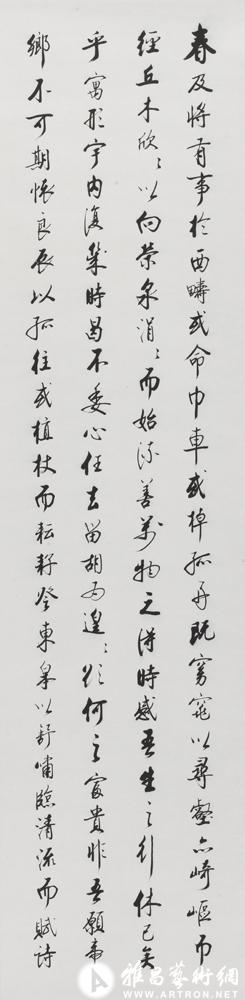 春及將有事於西疇或命巾車或棹孤舟既窈窕以尋壑亦崎嶇而
經丘木欣〻以向榮泉涓〻而始流善萬物之得時感吾生之行休已矣
乎寓形宇内復幾時曷不委心任去留胡為遑〻欲何之富貴非吾願帝
鄉不可期懷良辰以孤往或植杖而耘耔登東皋以舒嘯臨清流而賦詩
雅昌藝術網
WWW.ARTRON.NET